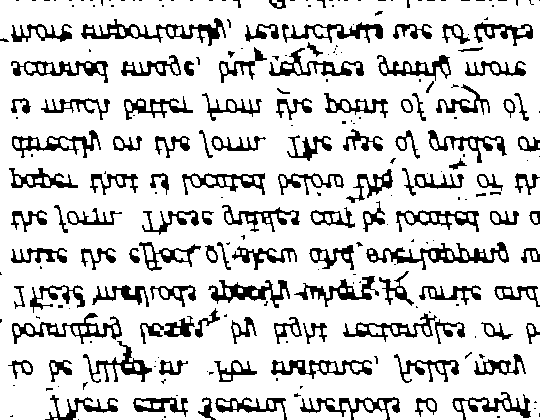 There exist several methods to design
to be filled in. For instance, fields may
bounding boxes, by light rectangles or
These methods specify where to write and
mize the effect of skew and overlapping
the form. These guides can be located on a
paper that is located below the form or
directly on the form. The use of guides on
is much better from the point of view of
scanned image, but requires giving more
more importantly, restricts its use to tasks